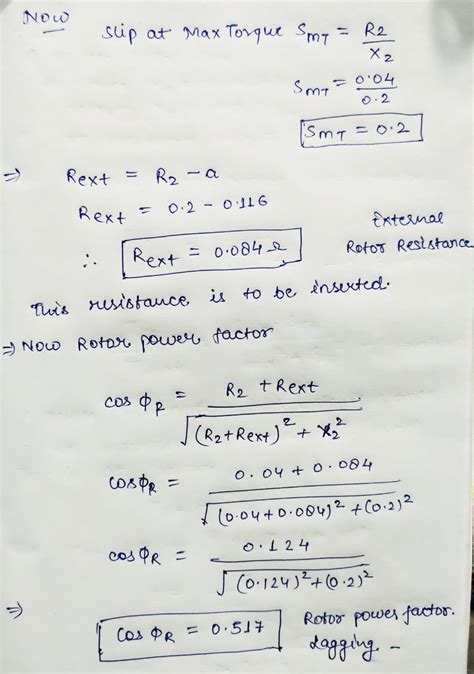 Now
Slip at Max Torque SmT = R2/X2
SmT = 0.04/0.2
SmT = 0.2
⇒ Rext = R2 - a
Rext = 0.2 - 0.116
∴ Rext = 0.084 Ω
External
Rotor Resistance
This resistance is to be inserted.
⇒ Now Rotor power factor
cos ΦR = R2 + Rext / √(R2+Rext)² + X2²
cos ΦR = 0.04 + 0.084 / √(0.04+0.084)² + (0.2)²
cos ΦR = 0.124 / √(0.124)² + (0.2)²
⇒ cos ΦR = 0.517
Rotor power factor.
Lagging. -